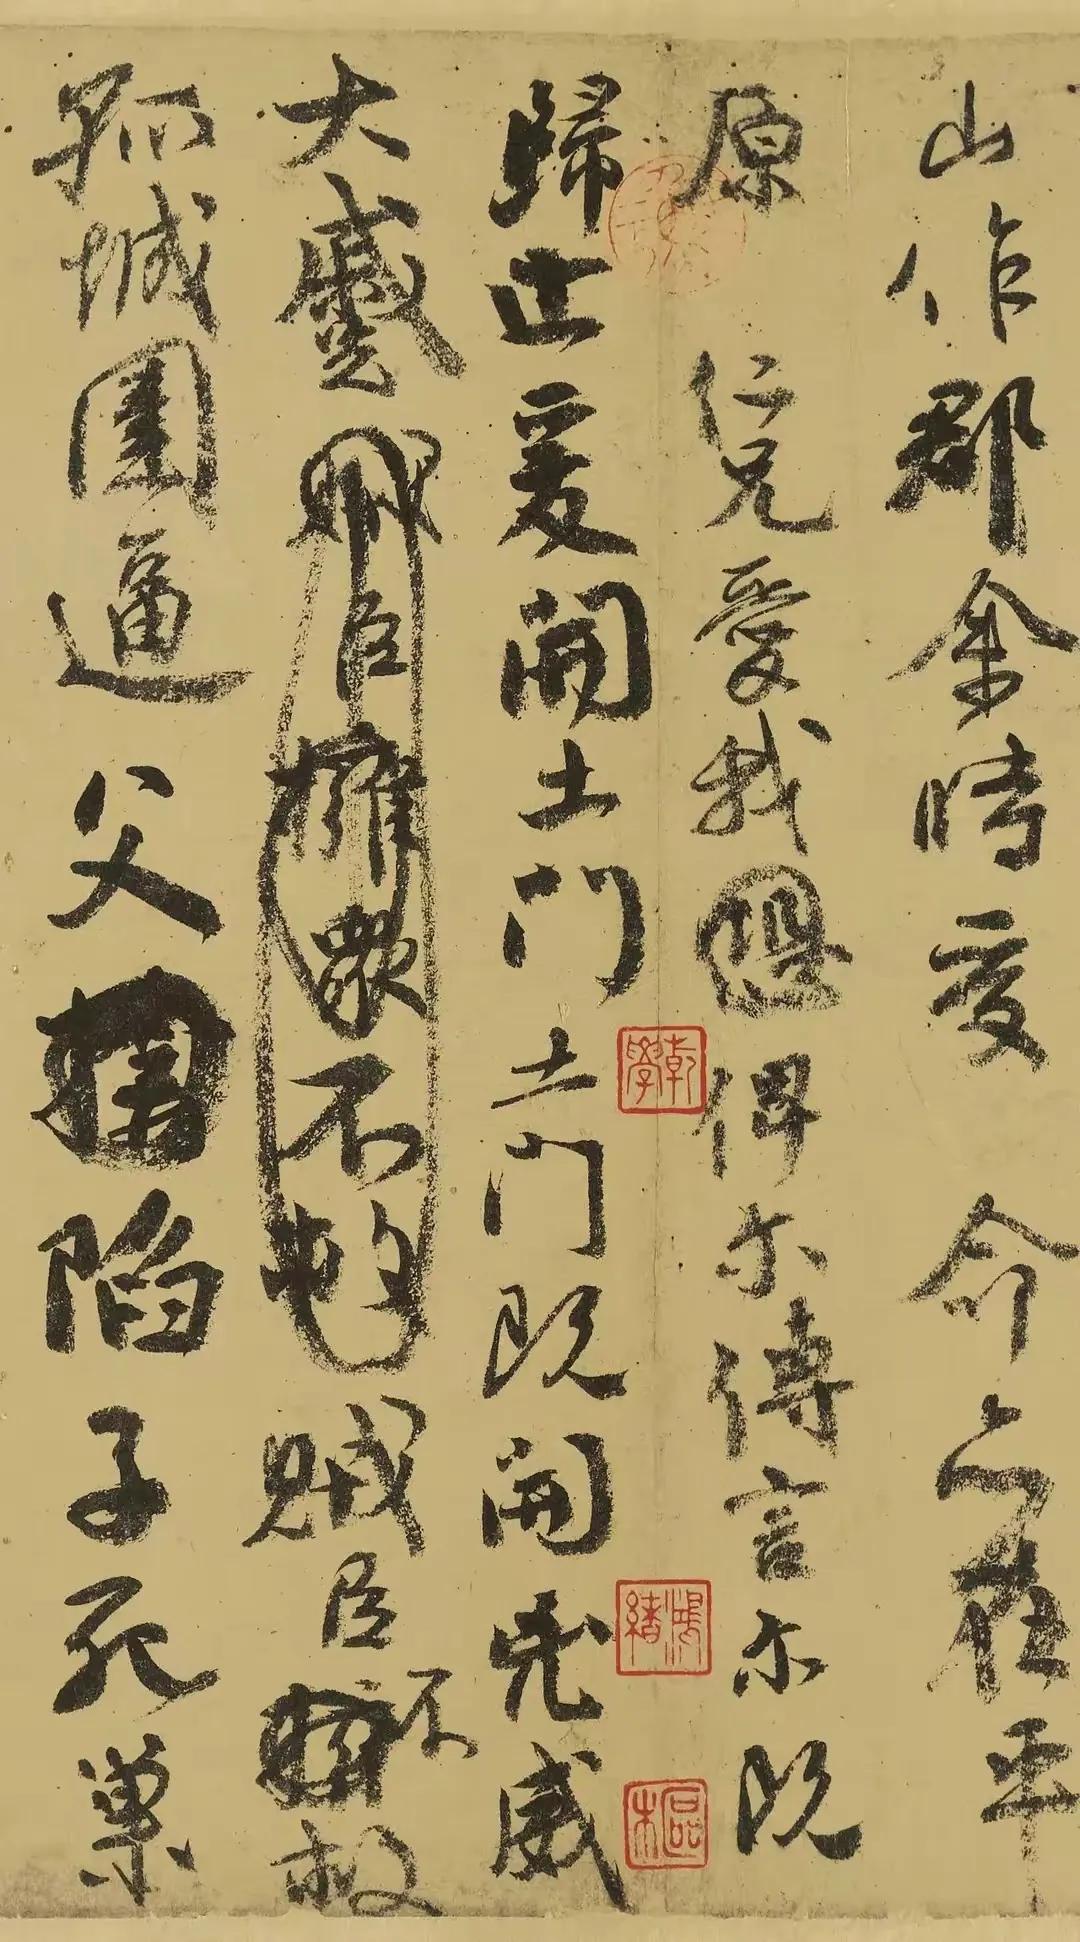 山作郡余時受命亦在平
原仁兄愛我俾尔傳言尔既
歸止爰開土門土門既開兇威
大蹙賊臣擁衆不救賊臣不救
孤城圍逼父陷子死巢
乾學
鴻緒